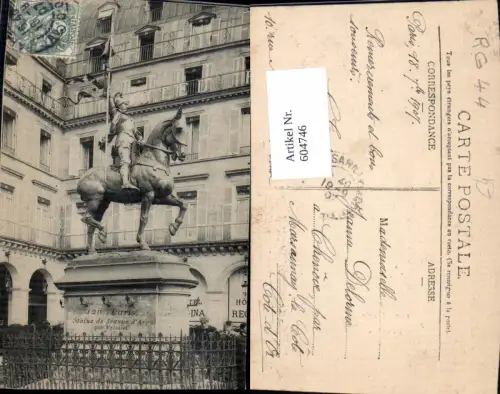 120 Paris
Statue de Jeanne d'Arc
par Frémiet
HÔ
REG
INA
Artikel Nr.
604746
RG 44
CARTE POSTALE
Tous les pays étrangers n'acceptent pas la correspondance au recto. (Se renseigner à la poste).
CORRESPONDANCE
ADRESSE
Paris, 18. 7bre 1907.
Remerciements et bon
souvenir
Mademoiselle
Jeanne Delorme
à Chenôve, par
Marsannay la Côte
Côte d'Or